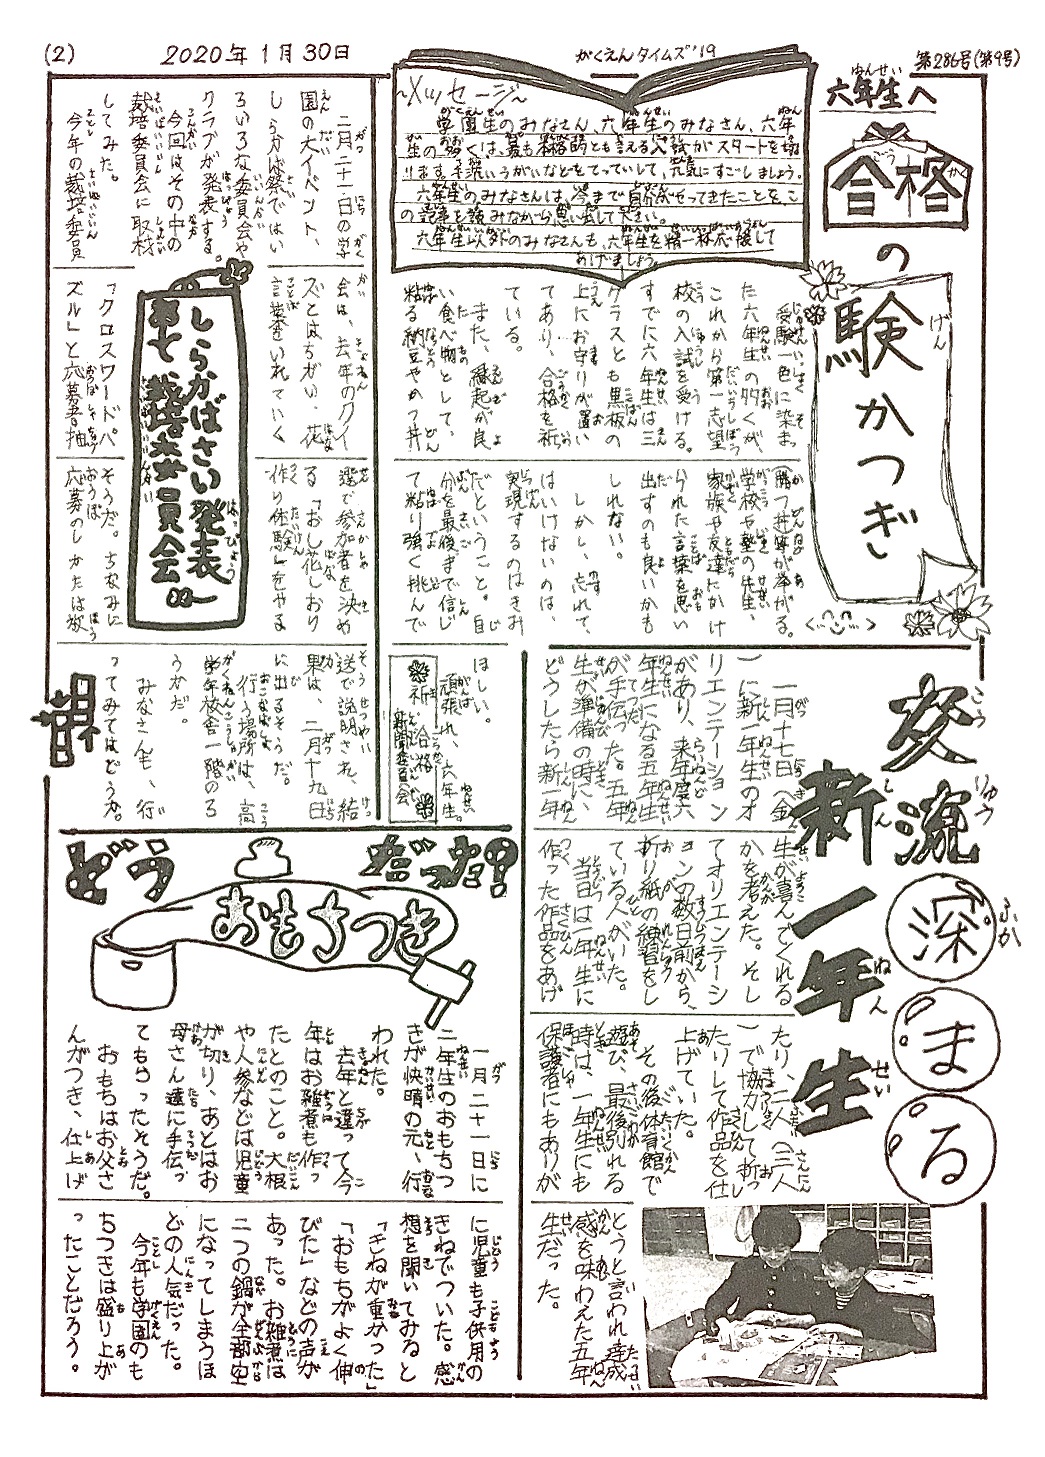 (2)
2020年1月30日
がくえんタイムズ'19
第286号(第9号)
六年生へ
合格
の
験かつぎ
~メッセージ~
学園生のみなさん、六年生のみなさん、六年
生の多くは、最も本格的とも言える入試がスタートを切
ります。手洗いうがいなどをてっていして、元気にすごしましょう。
六年生のみなさんは、今まで自分がやってきたことを、こ
の記事を読みながら思い出して下さい。
六年生以外のみなさんも、六年生を精一杯応援して
あげましょう。
受験一色に染まっ
た六年生の多くが、
これから第一志望
校の入試を受ける。
すでに六年生は三
クラスとも黒板の
上にお守りが置い
てあり、合格を祈っ
ている。
また、縁起が良
い食べ物として、
粘る納豆やかつ丼
(勝つ)丼等が挙がる。
学校や塾の先生、
家族や友達にかけ
られた言葉を思い
出すのも良いかも
しれない。
しかし、忘れて
はいけないのは、
実現するのはきみ
だということ。自
分を最後まで信じ
て粘り強く挑んで
ほしい。
頑張れ、六年生。
祈 合格
新聞委員会
交流
深まる
新一年生
一月十七日(金
)に新一年生のオ
リエンテーション
があり、来年度六
年生になる五年生
が手伝った。五年
生が準備の時に、
どうしたら新一年
生が喜んでくれる
かを考えた。そし
てオリエンテーシ
ョンの数日前から、
折り紙の練習をし
ている人がいた。
当日は一年生に
作った作品をあげ
たり、二人(三人
)で協力して折っ
たりして作品を仕
上げていた。
その後体育館で
遊び、最後別れる
時は、一年生にも
保護者にもありが
とうと言われ達成
感を味わえた五年
生だった。
しらかばさい発表
草で、栽培委員会
二月二十一日の学
園の大イベント、
しらかば祭ではい
ろいろな委員会や
クラブが発表する。
今回はその中の
栽培委員会に取材
してみた。
今年の栽培委員
会は、去年のクイ
ズとはちがい、花
言葉をいれていく
「クロスワードパ
ズル」と応募者抽
選で参加者を決め
る「おし花しおり
作り体験」をやる
そうだ。ちなみに
応募のしかたは放
送で説明され、結
果は、二月十九日
に出るそうだ。
行う場所は、高
学年校舎一階のろ
うかだ。
みなさんも、行
ってみてはどうか。
どうだった?
おもちつき
一月二十一日に
二年生のおもちつ
きが快晴の元、行
われた。
去年と違って今
年はお雑煮も作っ
たとのこと。大根
や人参などは児童
が切り、あとはお
母さん達に手伝っ
てもらったそうだ。
おもちはお父さ
んがつき、仕上げ
に児童も子供用の
きねでついた。感
想を聞いてみると
「きねが重かった」
「おもちがよく伸
びた」などの声が
あった。お雑煮は
二つの鍋が全部空
になってしまうほ
どの人気だった。
今年も学園のも
ちつきは盛り上が
ったことだろう。